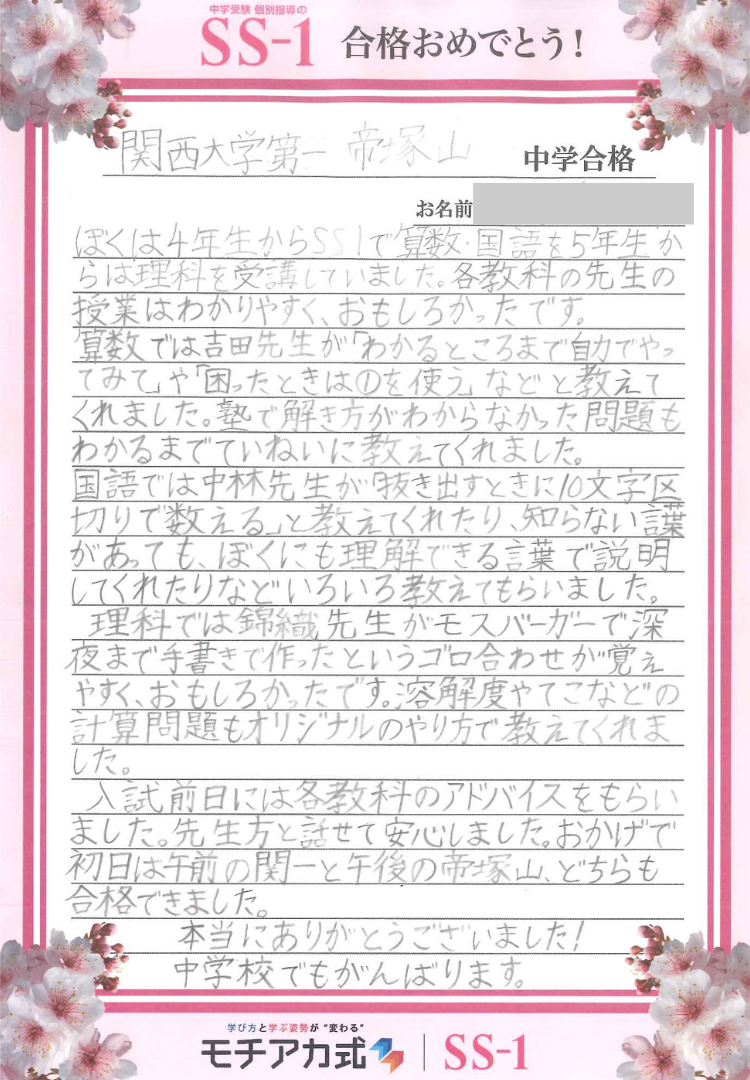 中学受験 個別指導の
SS-1 合格おめでとう!
関西大学第一 帝塚山 中学合格
お名前
ぼくは4年生からSS1で算数・国語を5年生か
らは理科を受講していました。各教科の先生の
授業はわかりやすく、おもしろかったです。
算数では吉田先生が「わかるところまで自力でやっ
てみて」や「困ったときは①を使う」などと教えて
くれました。塾で解き方がわからなかった問題も
わかるまでていねいに教えてくれました。
国語では中林先生が「抜き出すときに10文字区
切りで数える」と教えてくれたり、知らない言葉
があっても、ぼくにも理解できる言葉で説明
してくれたりなどいろいろ教えてもらいました。
理科では錦織先生がモスバーガーで深
夜まで手書きで作ったというゴロ合わせが覚え
やすく、おもしろかったです。溶解度やてこなどの
計算問題もオリジナルのやり方で教えてくれま
した。
入試前日には各教科のアドバイスをもらい
ました。先生方と話せて安心しました。おかげで
初日は午前の関一と午後の帝塚山、どちらも
合格できました。
本当にありがとうございました!
中学校でもがんばります。
学び方と学ぶ姿勢が“変わる”
モチアカ式 SS-1